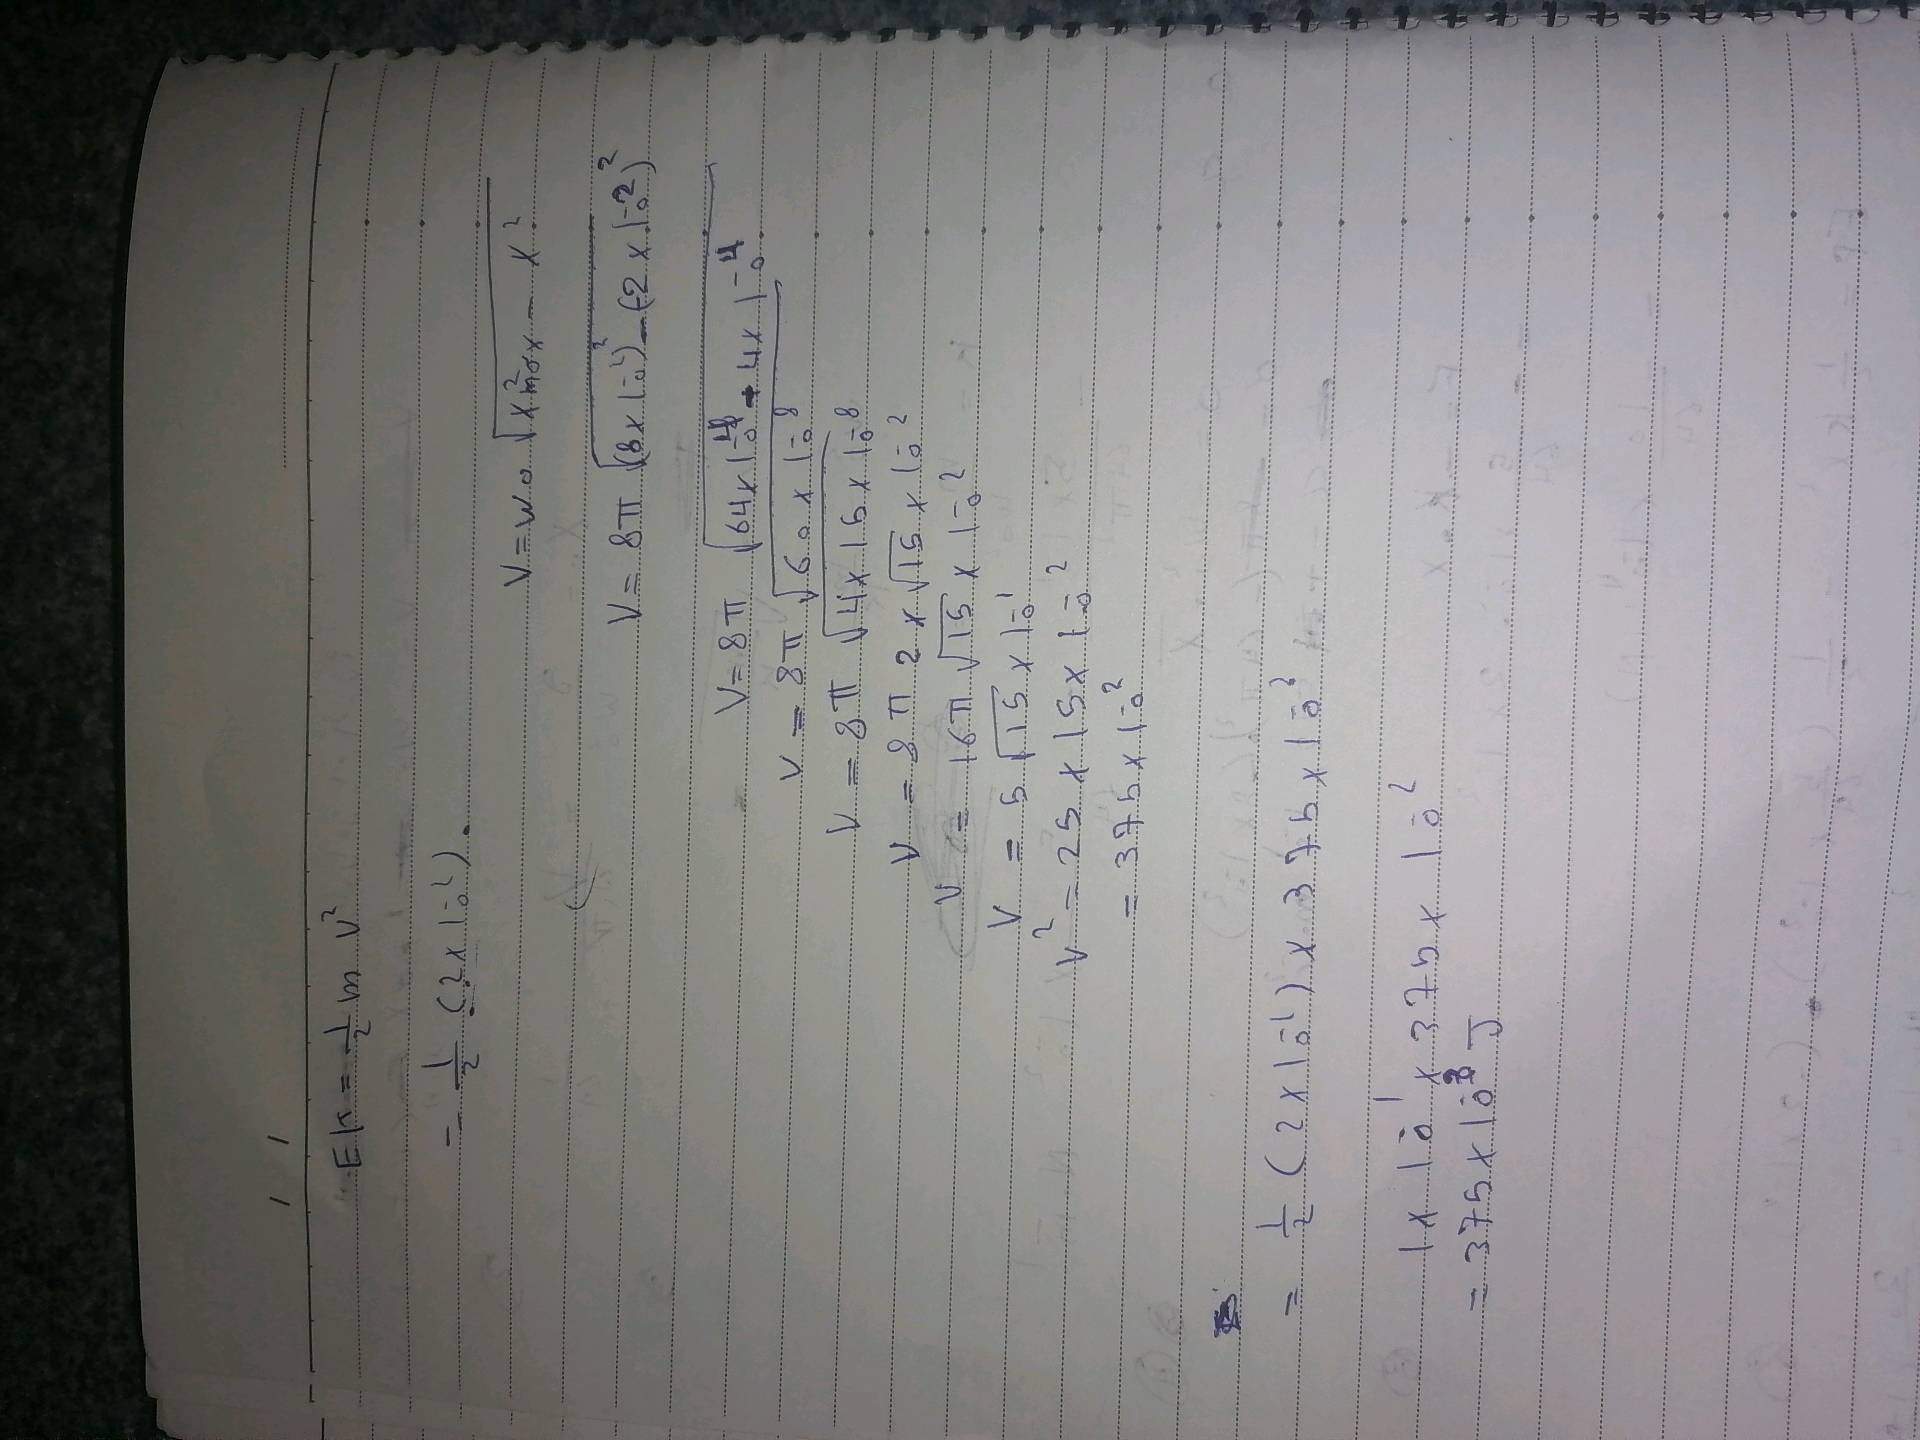 / /
Ek = 1/2 m v²
= 1/2 (2 x 10⁻¹).
V = wo √(x²max - x²)
V = 8π √((8 x 10⁻²)² - (-2 x 10⁻²)²)
V = 8π √(64 x 10⁻⁴ - 4 x 10⁻⁴)
V = 8π √(60 x 10⁻⁸)
V = 8π √(4 x 15 x 10⁻⁸)
V = 8π 2 x √15 x 10⁻²
V = 16π √15 x 10⁻²
V = 5 √15 x 10⁻¹
V² = 25 x 15 x 10⁻²
= 375 x 10⁻²
= 1/2 (2 x 10⁻¹) x 375 x 10⁻²
1 x 10⁻¹ x 375 x 10⁻²
= 375 x 10⁻³ J